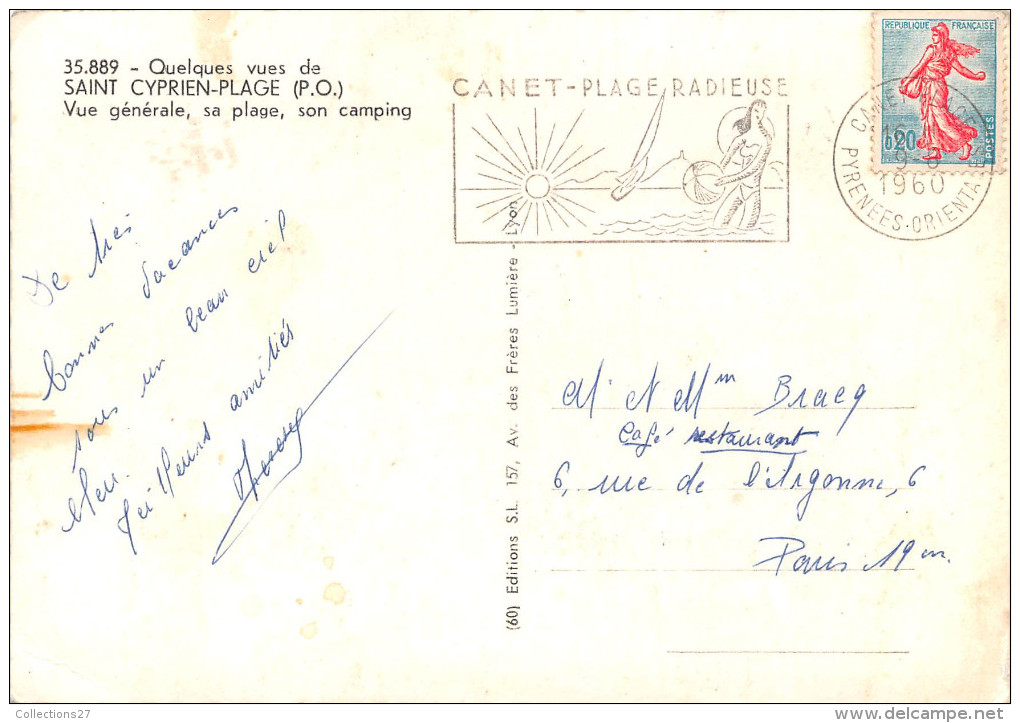 35.889 - Quelques vues de
SAINT CYPRIEN-PLAGE (P.O.)
Vue générale, sa plage, son camping
CANET-PLAGE RADIEUSE
REPUBLIQUE FRANÇAISE
0,20
POSTES
1960
PYRENEES-ORIENTALES
De très
bonnes vacances
sous un beau ciel
bleu.
Meilleures amitiés
(60) Editions S.L. 157, Av. des Frères Lumière - Lyon
M. & Mm Bracq
Café restaurant
6, rue de l'Argonne, 6
Paris 19 m.
Collections27